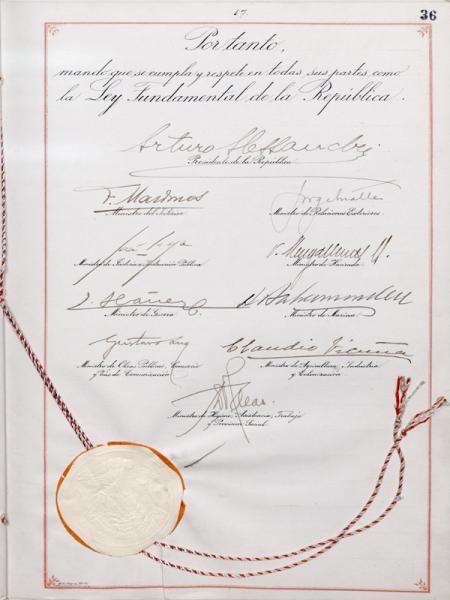 17.
36
Por tanto,
mando que se cumpla y respete en todas sus partes como
la Ley Fundamental de la República.
Arturo Alessandri
Presidente de la República
F. Mardones
Ministro del Interior
Jorge Matte
Ministro de Relaciones Exteriores
Ministro de Justicia e Instrucción Pública
V. Magallanes M.
Ministro de Hacienda
Ministro de Guerra
Ministro de Marina
Gustavo Lira
Ministro de Obras Públicas, Comercio
y Vías de Comunicación
Claudio Vicuña
Ministro de Agricultura, Industria
y Colonización
Ministro de Higiene, Asistencia, Trabajo
y Previsión Social